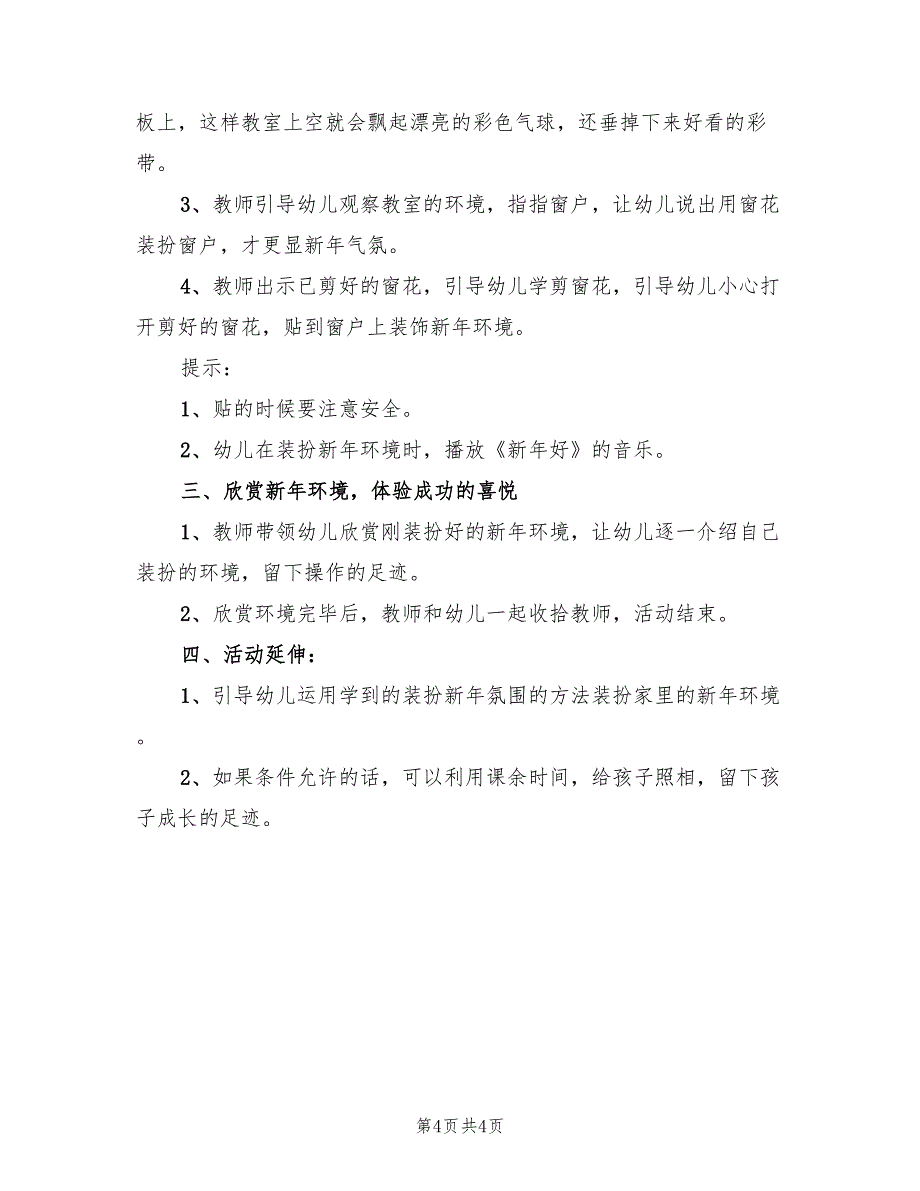 板上，这样教室上空就会飘起漂亮的彩色气球，还垂掉下来好看的彩
带。
3、教师引导幼儿观察教室的环境，指指窗户，让幼儿说出用窗花
装扮窗户，才更显新年气氛。
4、教师出示已剪好的窗花，引导幼儿学剪窗花，引导幼儿小心打
开剪好的窗花，贴到窗户上装饰新年环境。
提示：
1、贴的时候要注意安全。
2、幼儿在装扮新年环境时，播放《新年好》的音乐。
三、欣赏新年环境，体验成功的喜悦
1、教师带领幼儿欣赏刚装扮好的新年环境，让幼儿逐一介绍自己
装扮的环境，留下操作的足迹。
2、欣赏环境完毕后，教师和幼儿一起收拾教师，活动结束。
四、活动延伸：
1、引导幼儿运用学到的装扮新年氛围的方法装扮家里的新年环境
。
2、如果条件允许的话，可以利用课余时间，给孩子照相，留下孩
子成长的足迹。
第4页共4页